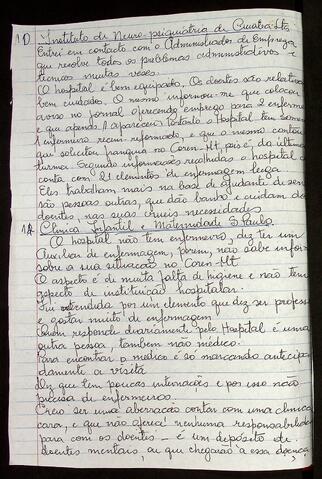 1D Instituto de Neuro-psiquiatria de Cuiabá Lta
Entrei em contacto com o Administrador da Empreza,
que resolve todos os problemas administrativos e
técnicos muitas vezes.
O hospital é bem equipado. Os doentes são relativa
bem cuidados. O mesmo informou-me que colocou
aviso no jornal oferecendo emprego para 2 enferme
e que apenas 1 apareceu. Portanto o Hospital tem somen
1 enfermeiro recém formado, e que o mesmo contou
que solicitou franquia no Coren-Mt, pois é da última
turma. Segundo informações recolhidas o hospital
conta com 21 elementos de enfermagem leiga
Eles trabalham mais na base de ajudante de
são pessoas outras, que dão banho e cuidam dos
doentes, nas suas cruéis necessidades.
1A Clínica Infantil e Maternidade S. Paulo
O hospital não tem enfermeiro, diz ter um
Auxiliar de enfermagem, porém, não sabe infor-
sobre a sua situação no Coren-Mt
O aspecto é de muita falta de higiene e não tem
aspecto de instituição hospitalar.
Fui atendida por um elemento que diz ser profess
e gostar muito de enfermagem
Quem responde diariamente pelo Hospital é uma
outra pessoa, também não médico.
Para encontrar o médico é só marcando antecipa
damente a visita
Diz que tem poucas internações e por isso não
precisa de enfermeiros.
Creio ser uma aberração contar com uma clinica
cara, e que não oferece nenhuma responsabilidade
para com os doentes - é um depósito de
doentes mentais, ou que chegarão a essa doença